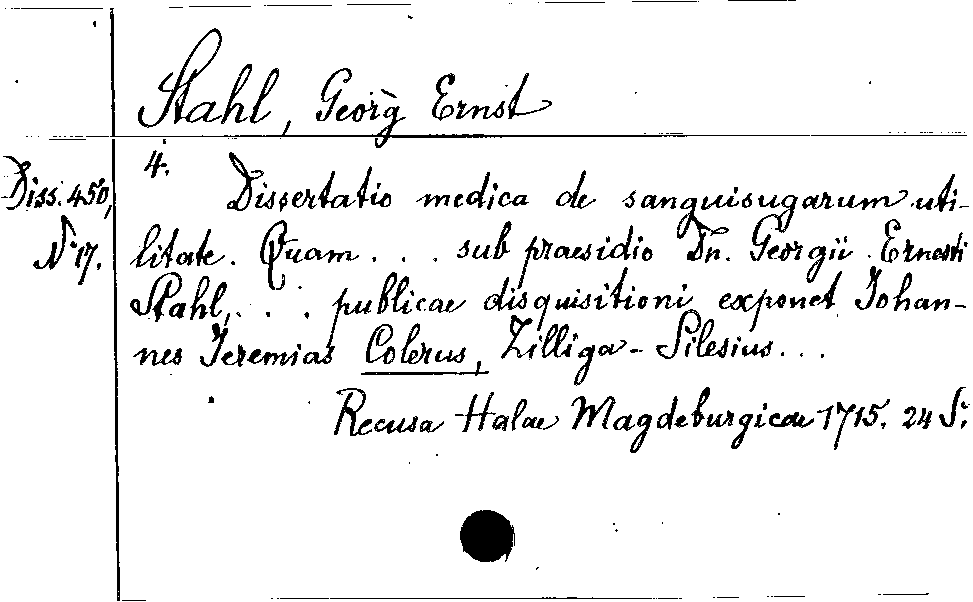 Stahl, Georg Ernst
4.
Diss. 450,
N 17.
Dissertatio medica de sanguisugarum uti-
litate. Quam . . . sub praesidio Dn. Georgii Ernesti
Stahl, . . . publicae disquisitioni exponet Johan-
nes Jeremias Colerus, Zilliga-Silesius . . .
Recusa Halae Magdeburgicae 1715. 24 S.